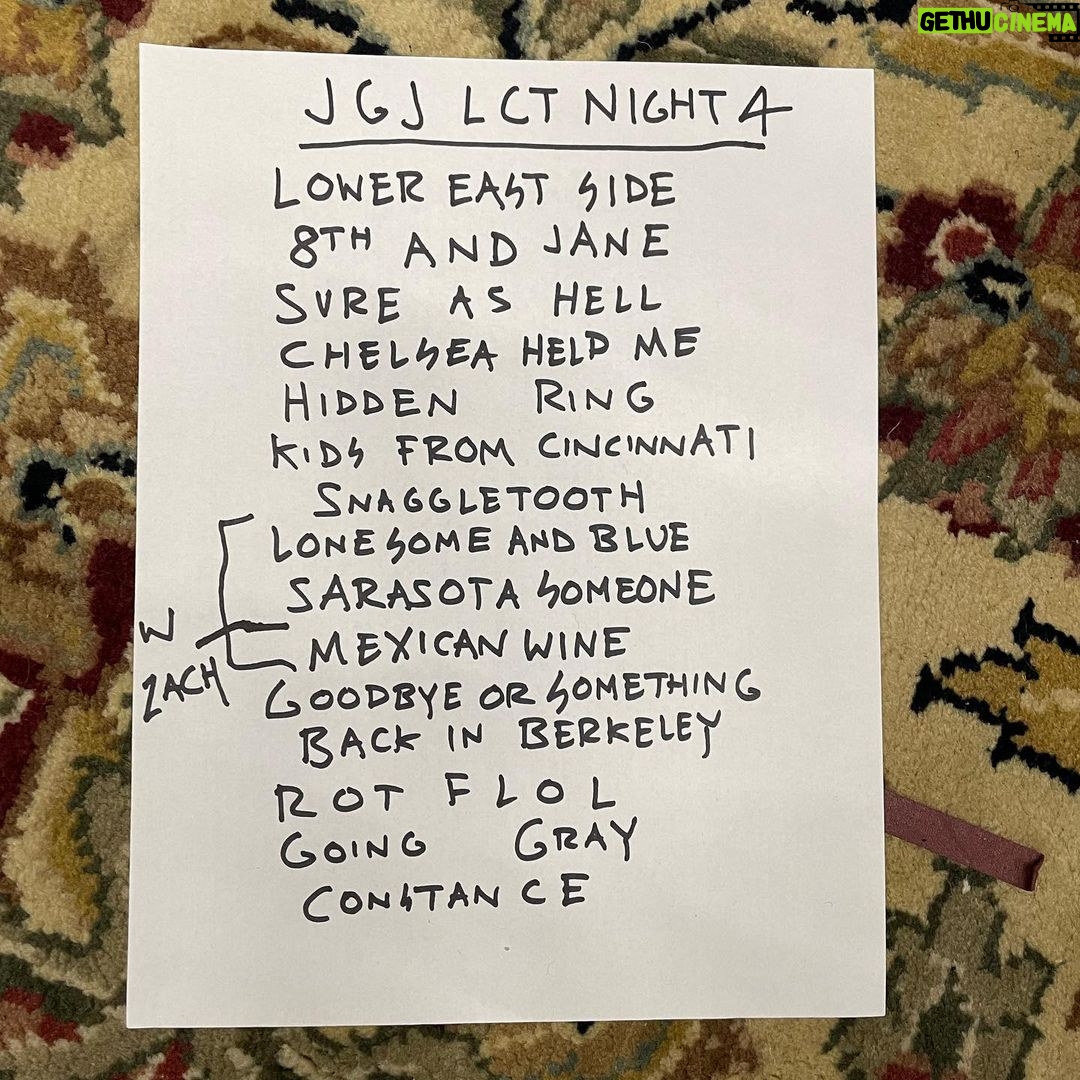 GETHUCINEMA
JGJ LCT NIGHT 4
LOWER EAST SIDE
8TH AND JANE
SURE AS HELL
CHELSEA HELP ME
HIDDEN RING
KIDS FROM CINCINNATI
SNAGGLETOOTH
LONESOME AND BLUE
SARASOTA SOMEONE
MEXICAN WINE
W
ZACH
GOODBYE OR SOMETHING
BACK IN BERKELEY
ROT FLOL
GOING GRAY
CONSTANCE